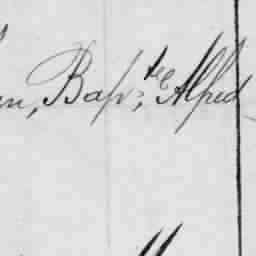 en, Bap.te Alfred